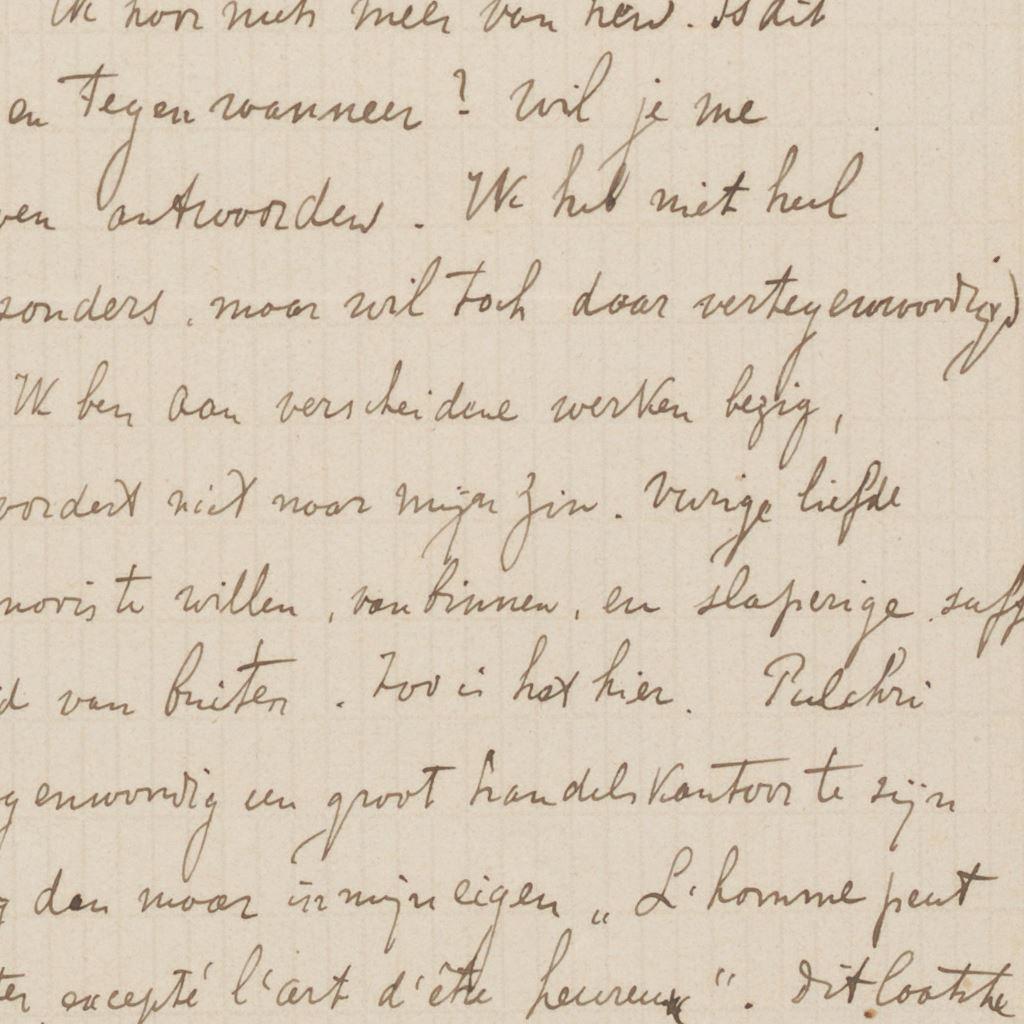 Ik hoor niets meer van hen. Is dit
en tegen wanneer? Wil je me
ven antwoorden. Ik heb niet heel
zonders, maar wil toch daar vertegenwoordigd
Ik ben aan verscheidene werken bezig,
vordert niet naar mijn zin. Vurige liefde
te willen, van binnen, en slaperige
d van buiten. Zoo is het hier. Pulchri
genwoordig een groot handelskantoor te zijn
dan maar in mijn eigen „L'homme peut
ter excepté l'art d'être heureux". Dit laatste